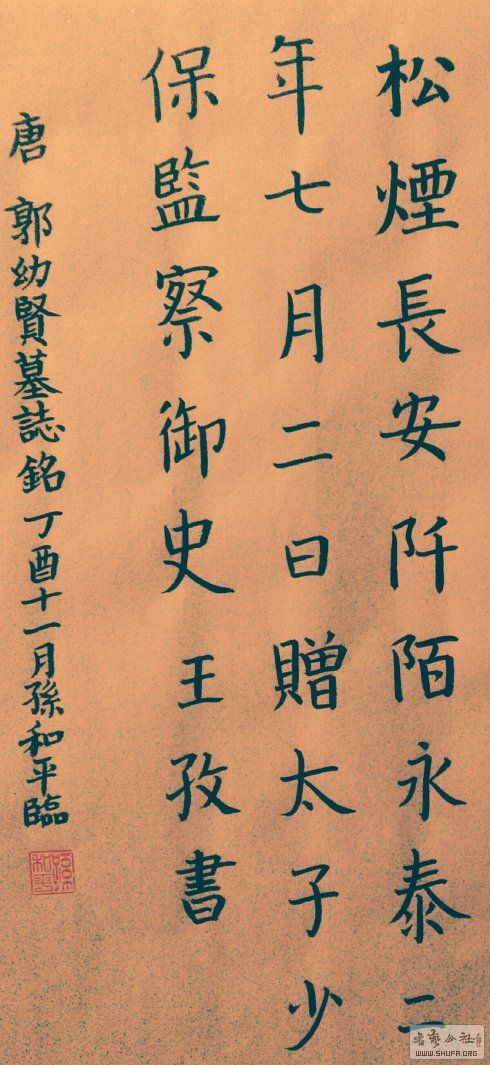 松煙長安阡陌永泰二
年七月二日贈太子少
保監察御史王孜書
唐 郭幼賢墓誌銘丁酉十一月孫和平臨
WWW.SHUFA.ORG